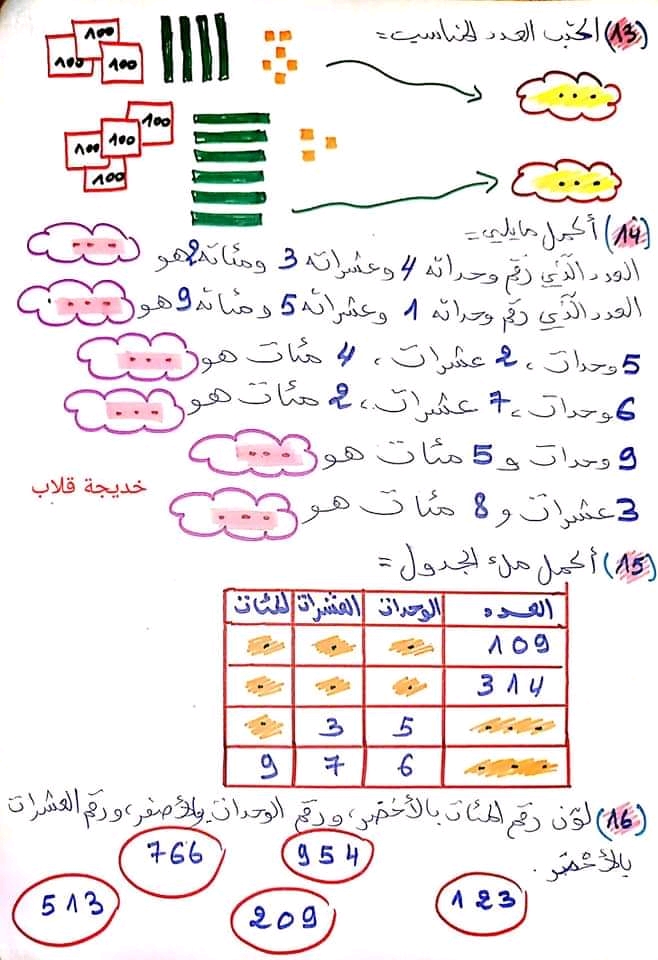 13) اكتب العدد المناسب =
100 100 100
...
100 100 100 100
...
14) أكمل مايلي =
العدد الذي رقم وحداته 4 وعشراته 3 ومئاته 2 هو ...
العدد الذي رقم وحداته 1 وعشراته 5 ومئاته 9 هو ...
5 وحدات، 2 عشرات، 4 مئات هو ...
6 وحدات، 7 عشرات، 2 مئات هو ...
9 وحدات و 5 مئات هو ...
3 عشرات و 8 مئات هو ...
خديجة قلاب
15) أكمل ملء الجدول =
العدد الوحدات العشرات المئات
109 . . .
314 . . .
... 5 3 .
... 6 7 9
16) لون رقم المئات بالأخضر، ورقم الوحدات بالأصفر، ورقم العشرات
بالأخضر.
954 766
123 209 513